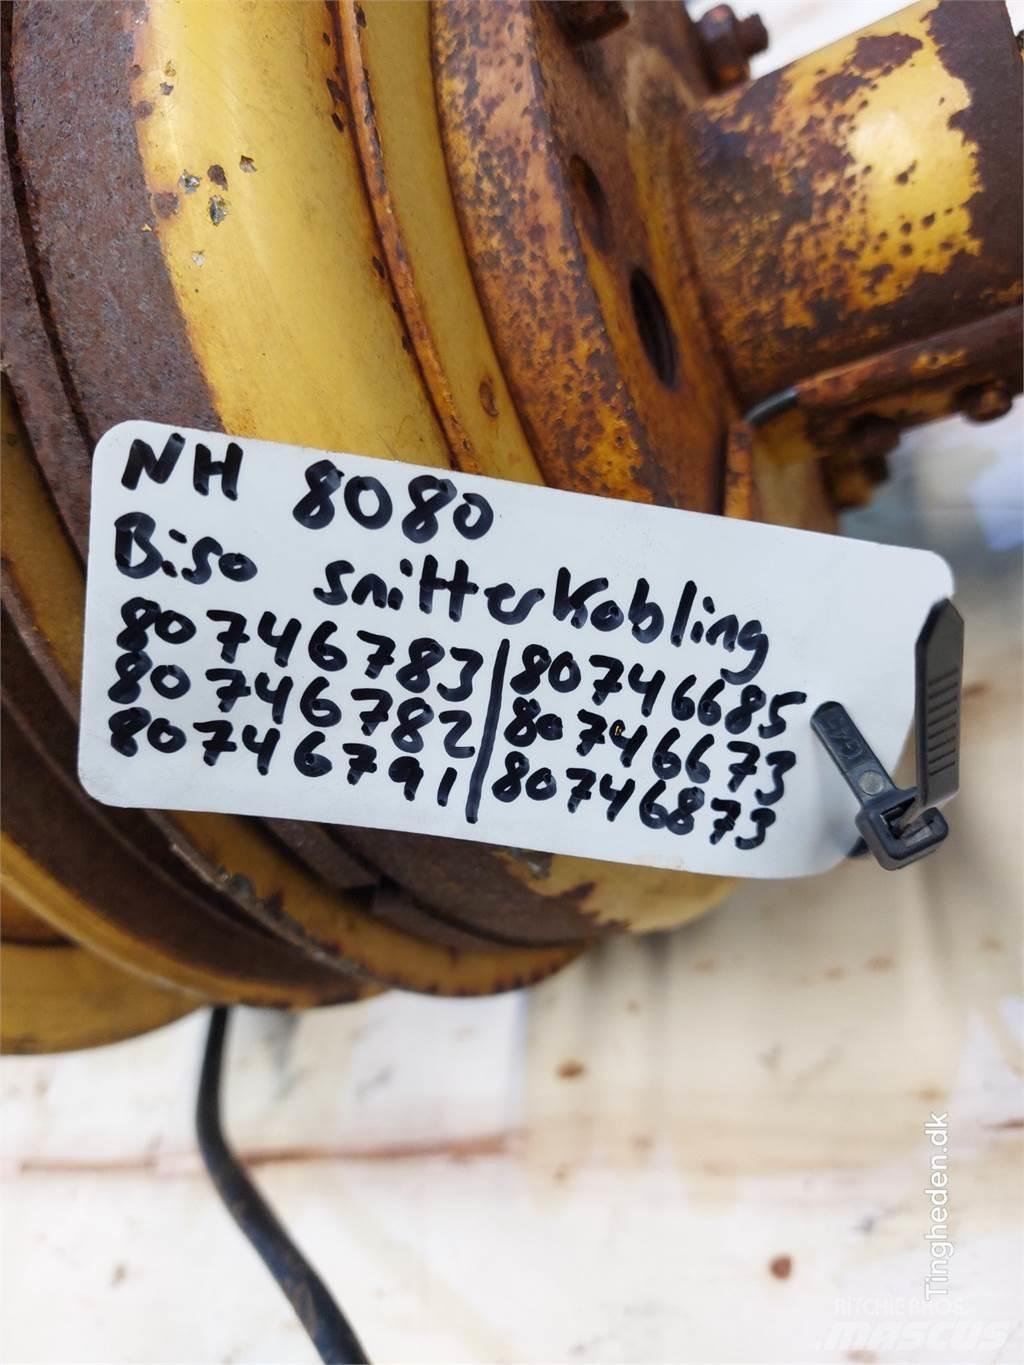 NH 8080
Biso snitterkobling
80746783 | 80746685
80746782 | 80746673
80746791 | 80746873
Tingheden.dk
RITCHIE BROS.
MASCUS